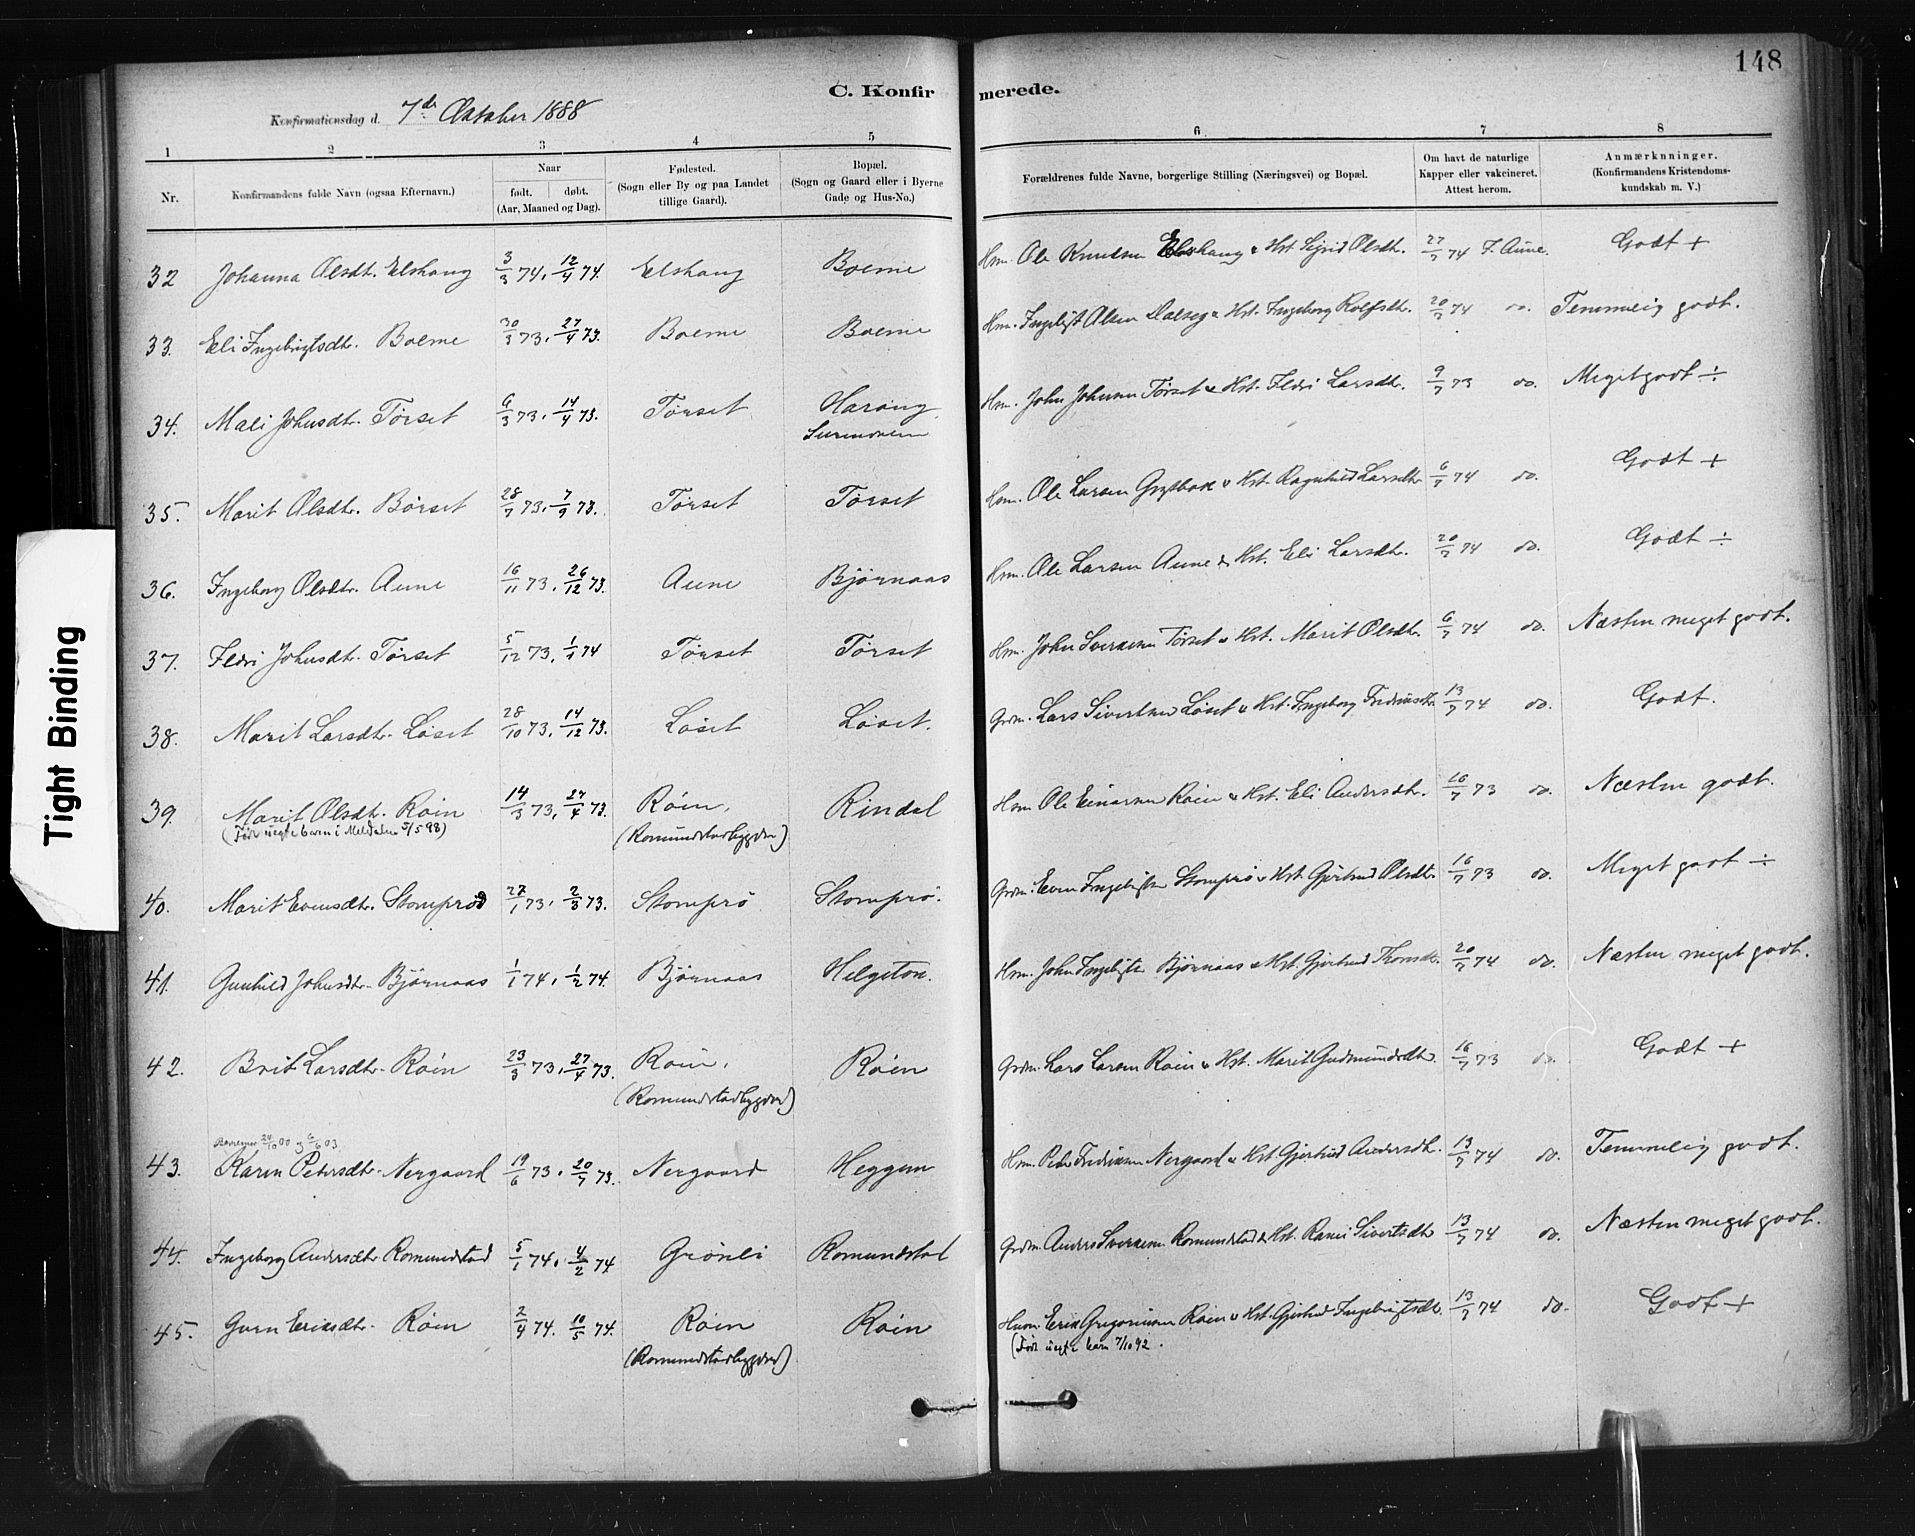 148
C. Konfirmerede.
Konfirmationsdag d. 7de Oktober 1888
1 2 3 4 5 6 7 8
Nr. Konfirmandens fulde Navn (ogsaa Efternavn.) Naar født. døbt. (Aar, Maaned og Dag). Fødested. (Sogn eller By og paa Landet tillige Gaard). Bopæl. (Sogn og Gaard eller i Byerne Gade og Hus-No.) Forældrenes fulde Navne, borgerlige Stilling (Næringsvei) og Bopæl. Om havt de naturlige Kapper eller vakcineret. Attest herom. Anmærkninger. (Konfirmandens Kristendomskundskab m. V.)
32 Johanna Olsdt. Elshaug 3/3 74. 12/4 74. Elshaug Boeme Hm. Ole Knudsen Elshaug & Hst. Sigrid Olsdt. 27/7 74 F. Aune. Godt +
33. Eli Ingebrigtsdt. Boeme 30/3 73. 27/4 73. Boeme Boeme Hm. Ingebrigt Olsen Dalseg & Hst. Ingeborg Rolfsdt. 20/7 74 do. Temmelig godt.
34. Mali Johnsdt. Tørset 6/3 73. 14/4 73. Tørset Harang Surendalen Hm. John Johnsen Tørset & Hst. Ildri Larsdt. 9/7 73 do. Meget godt ÷
35. Marit Olsdt. Børset 28/7 73. 7/9 73. Tørset Tørset Hm. Ole Larsen & Hst. Ragnhild Larsdt. 6/7 74 do. Godt +
36. Ingeborg Olsdt. Aune 16/11 73. 26/12 73. Aune Bjørnaas Hm. Ole Larsen Aune & Hst. Eli Larsdt. 20/7 74 do. Godt ÷
37. Ildri Johnsdt. Tørset 5/12 73. 1/1 74 Tørset Tørset Hm. John Sversen Tørset & Hst. Marit Olsdt. 6/7 74 do. Næsten meget godt.
38. Marit Larsdt. Løset 28/10 73. 14/12 73. Løset Løset. Grdm. Lars Sivertsen Løset & Hst. Ingeborg Fredriksdt. 13/7 74 do. Godt.
39. Marit Olsdt. Røin 14/3 73. 27/4 73. Røin, Rindal Hm. Ole Einarsen Røin & Hst. Eli Andersdt. 16/7 73 do. Næsten godt.
(Født uegte barn i Meldalen 5/5 98) (Romundstadbygden)
40. Marit Evensdt. Stomprød 27/1 73. 2/3 73. Stomprø Stomprø. Grdm. Even Ingebrigtsen Stomprø & Hst. Gjertrud Olsdt. 16/7 73 do. Meget godt ÷
41. Gunhild Johnsdt. Bjørnaas 1/1 74. 1/2 74. Bjørnaas Helgeton. Hm. John Ingebrigtsen Bjørnaas & Hst. Gjertrud Thorsdt. 20/7 74 do. Næsten meget godt.
42. Brit Larsdt. Røin 23/3 73. 27/4 73. Røin, Røin Grdm. Lars Larsen Røin & Hst. Marit Gudmundsdt. 16/7 73 do. Godt +
(Romundstadbygden)
24/10 00 & 6/6 03
43. Karen Petersdt. Nergaard 19/6 73. 20/7 73. Nergaard Heggem Hm. Peder Fredriksen Nergaard & Hst. Gjertrud Andersdt. 13/7 74 do. Temmelig godt.
44. Ingeborg Andersdt. Romundstad 5/1 74. 4/2 74. Grönli Romundstad Grdm. Anders Sversen Romundstad & Hst. Randi Sivertsdt. 13/7 74 do. Næsten meget godt.
45. Guru Eriksdt. Røin 2/4 74. 10/5 74. Røin Røin Husm. Erik Gregoriusen Røin & Hst. Gjertrud Ingebrigtsdt. 13/7 74 do. Godt +
(Romundstadbygden) (Født uegte barn 7/10 92.
Tight Binding